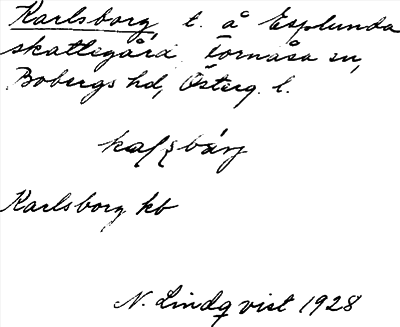 Karlsborg, t. å Esplunda
skattegård Tornåsa sn,
Bobergs hd, Österg. l.
Karlsborg kb
N. Lindqvist 1928